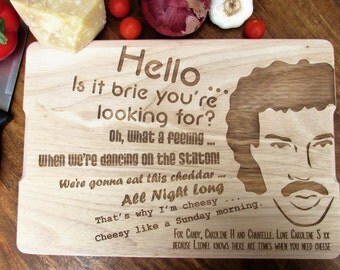 Hello...
Is it brie you're
looking for?
Oh, what a feeling ...
When we're dancing on the Stilton!
We're gonna eat this cheddar ...
All Night Long
That's why I'm cheesy ....
Cheesy like a Sunday morning.
For Candy, Caroline H and Chantelle. Love Caroline S xx
because Lionel knows there are times when you need cheese